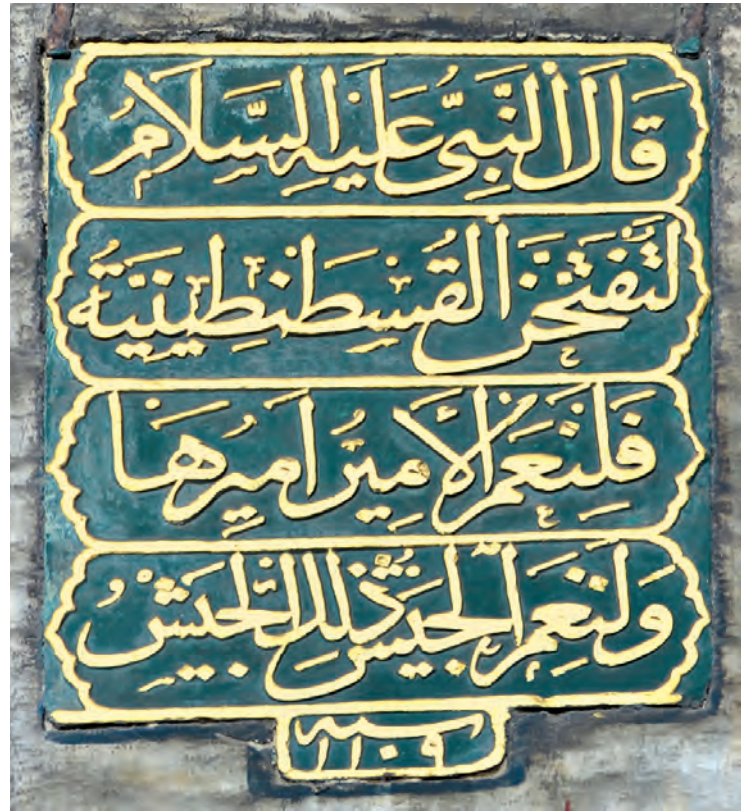 قَالَ النَّبِىُّ عَلَيْهِ السَّلَامُ
لَتُفْتَحَنَّ القُسْطَنْطِينِيَّةُ
فَلَنِعْمَ الْاَمِيرُ اَمِيرُهَا
وَلَنِعْمَ الْجَيْشُ ذٰلِكَ الْجَيْشُ
سنه
١١٠٩